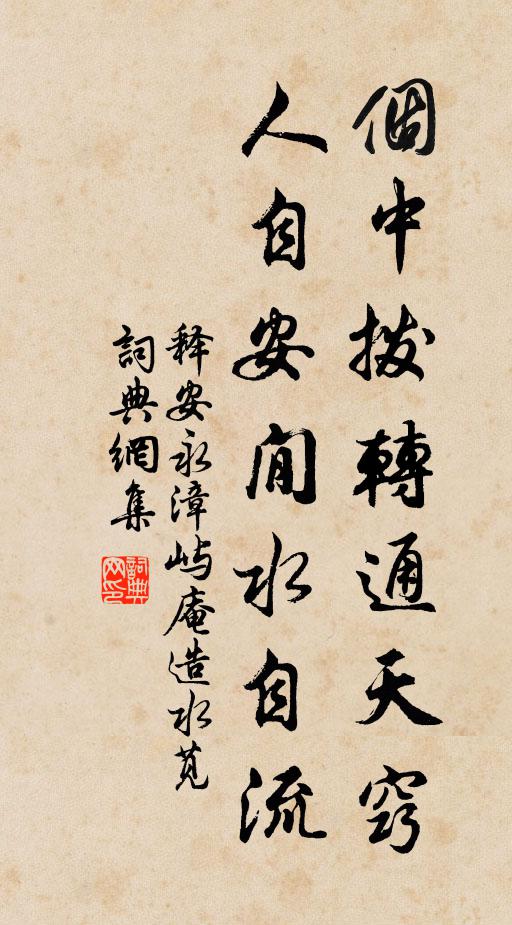 個中撥轉通天竅
人自安閒水自流
释安永漳屿庵造水筧
詞典網集
詞典网印